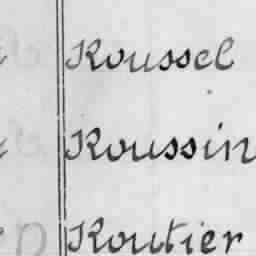 Roussel
Roussin
Routier